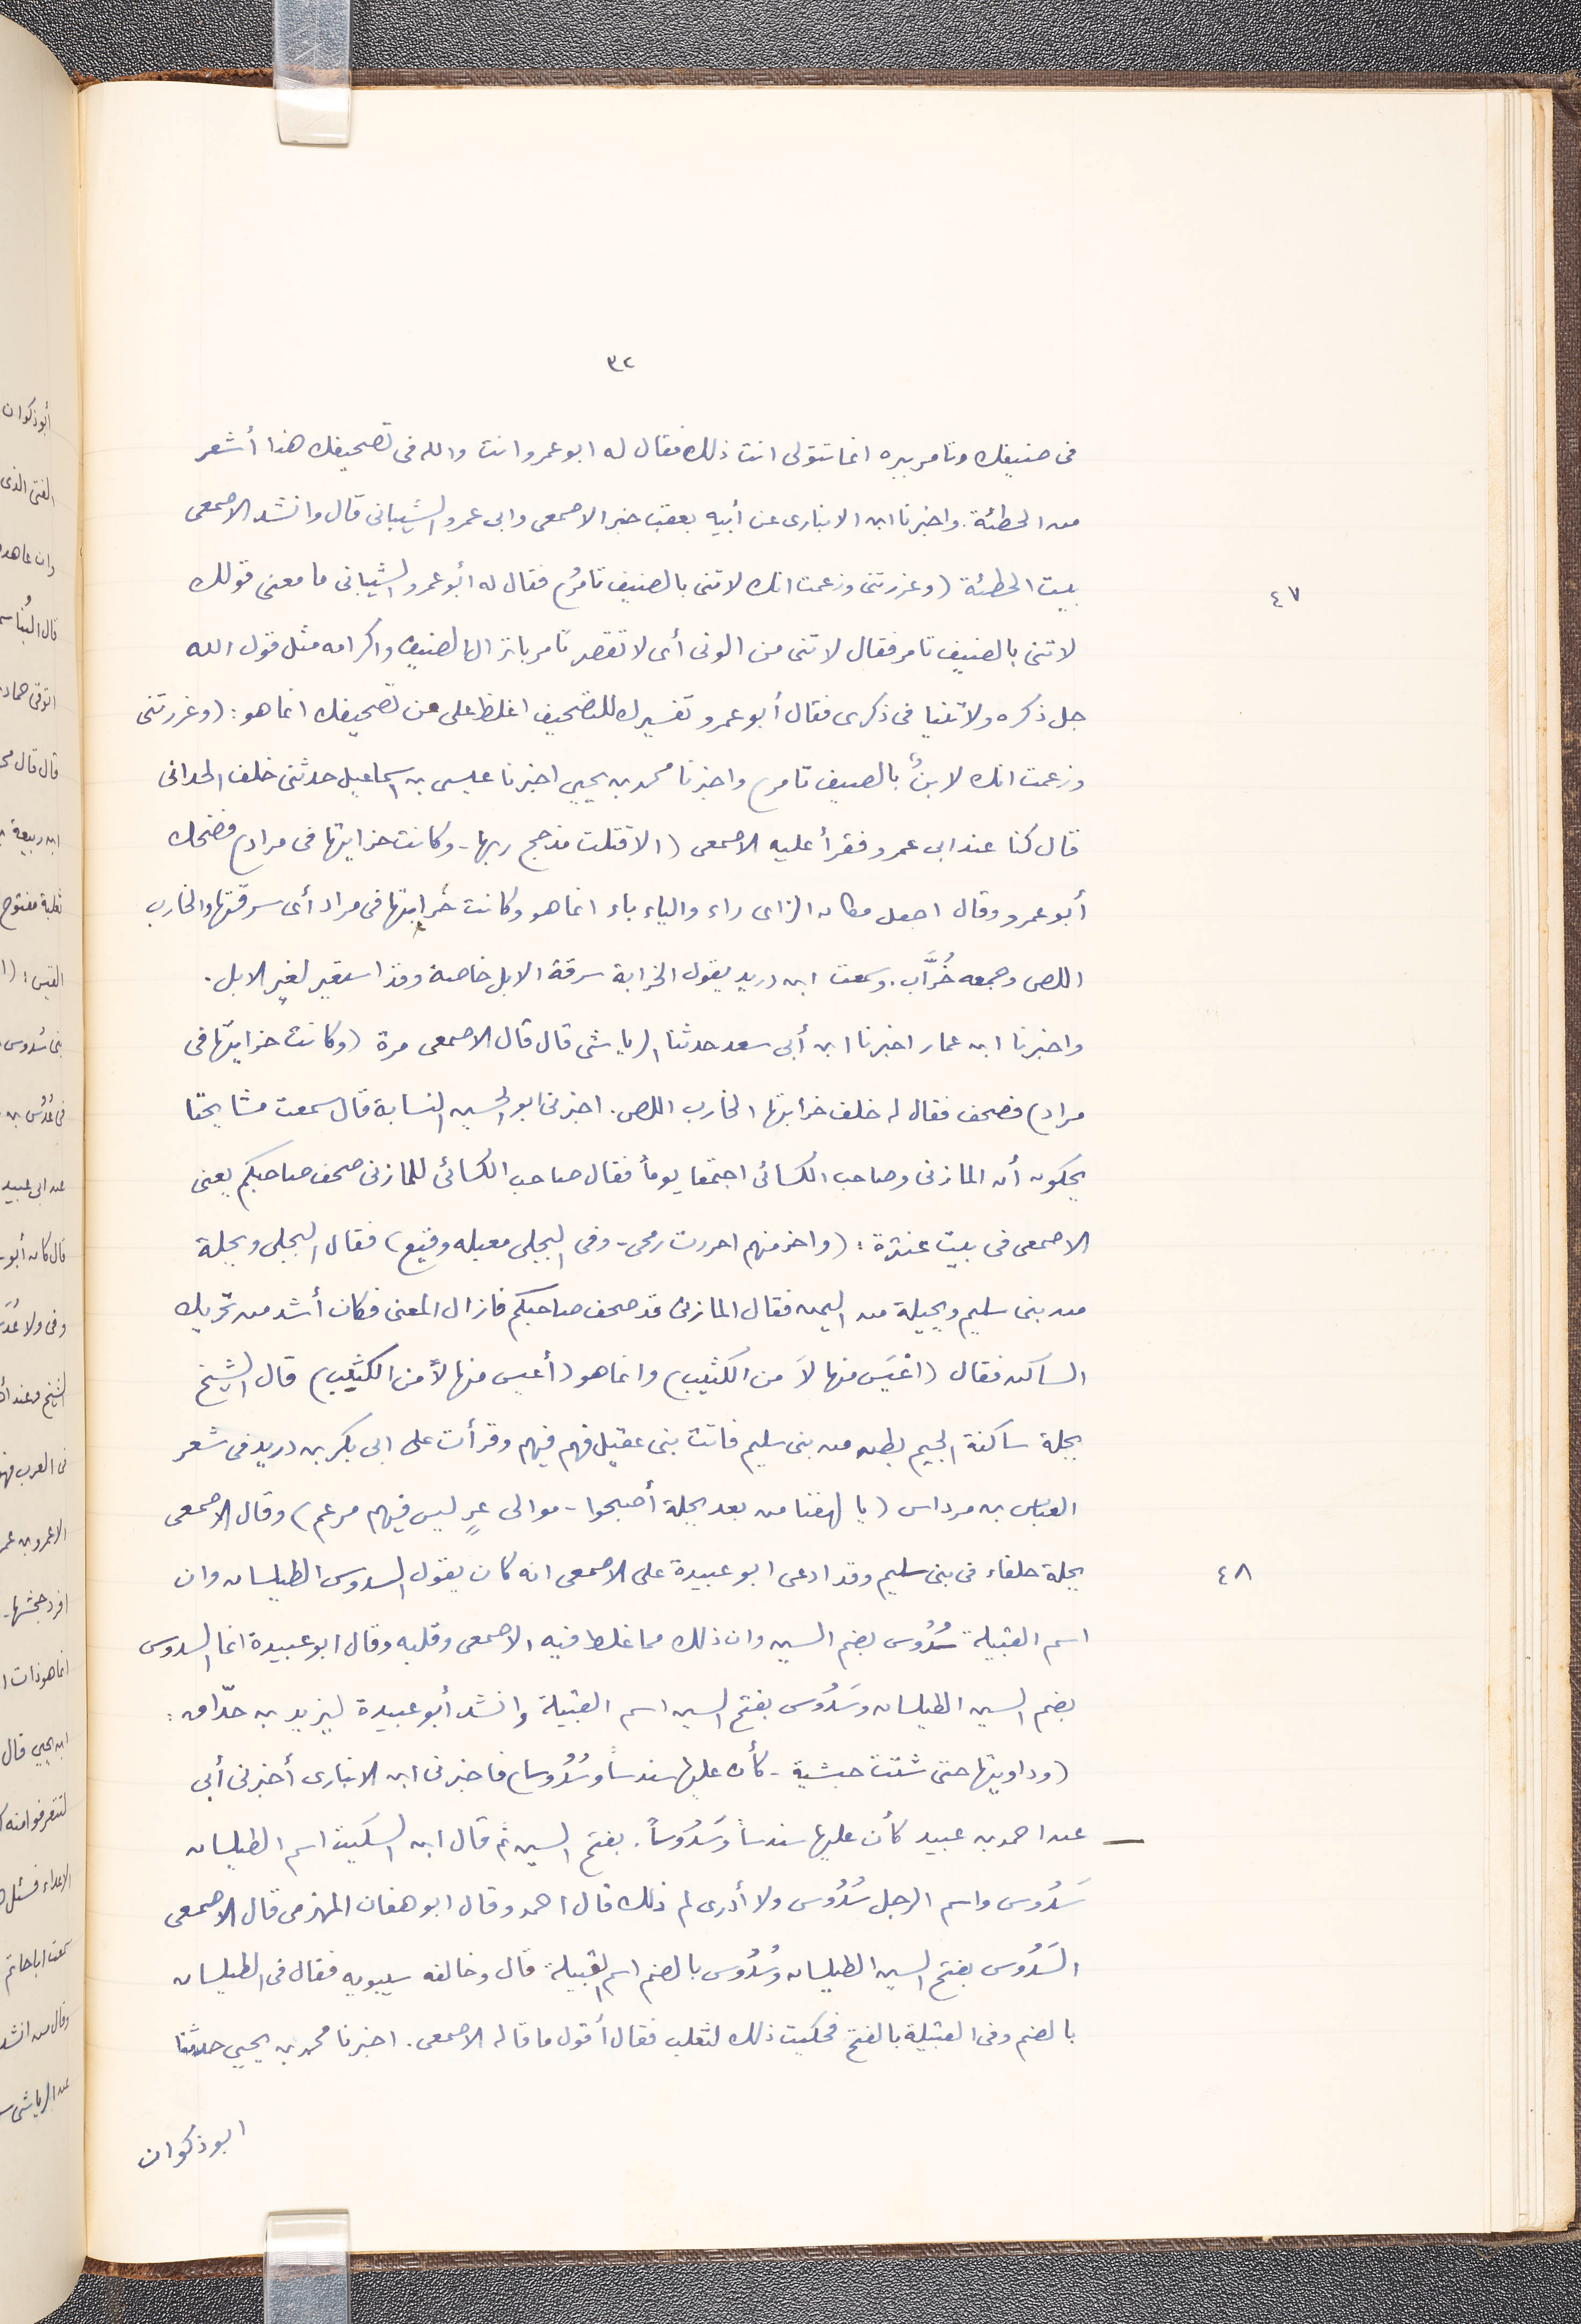 ٣٢
فى ضيفك وتامر ببره انما تتولى انت ذلك فقال له ابو عمرو انت والله فى تصحيفك هذا أشعر
من الحطئة. واخبرنا ابن الانبارى عن أبيه بعقب خبر الاصمعى وابى عمرو الشيبانى قال وانشد الاصمعى
٤٧
بيت الحطئة (وغررتنى وزعمت انك لاتنى بالضيف تامُر) فقال له أبو عمرو الشيبانى ما معنى قولك
لا تنى بالضيف تامر فقال لا تنى من الونى أى لا تقصر تامر بانزال الضيف واكرامه مثل قول الله
جل ذكره ولا تنيا فى ذكرى فقال أبو عمرو تفسيرك للتصحيف اغلظ على من تصحيفك انما هو: (وغررتنى
وزعمت انك لابنٌ بالصيف تامر) واخبرنا محمد بن يحيى اخبرنا عيسى بن اسماعيل حدثنى خلف الحدانى
قال كنا عند ابى عمرو فقرأ عليه الاصمعى (الا قتلت مذحج ربها - وكانت خزايتها فى مراد) فضحك
أبو عمرو وقال اجعل مكان الزاى راء والياء باء انما هو وكانت خُرابتها فى مراد أى سرقتها والخارب
اللص وجمعه خُرَّاب. وسمعت ابن دريد يقول الخرابة سرقة الابل خاصة وقد استعير لغير الابل.
واخبرنا ابن عمار اخبرنا ابن أبى سعد حدثنا الرياشى قال قال الاصمعى مرة (وكانت خزايتها فى
مراد) فصحف فقال له خلف خرابتها الخارب اللص. اخبرنى ابو الحسين النسابة قال سمعت مشايخنا
يحكون أن المازنى وصاحب الكسائى اجتمعا يوماً فقال صاحب الكسائى للمازنى صحف صاحبكم يعنى
الاصمعى فى بيت عنترة: (واخر منهم اجررت رمحى - وفى البجلى معبلة وقيع) فقال البجلى وبجلة
من بنى سليم وبجيلة من اليمن فقال المازنى قد صحف صاحبكم فازال المعنى فكان أشد من تحريك
الساكن فقال (اغيَس منها لاَ من الكثيب) وانما هو (أعيس منهالاً من الكثيب) قال الشيخ
بجلة ساكنة الجيم بطن من بنى سليم فاتت بنى عقيل فهم فيهم وقرأت على ابى بكر بن دريد فى شعر
العباس بن مرداس (يا لهفتا من بعد بجلة أصبحوا - موالى عرٍ ليس فيهم مرعم) وقال الاصمعى
٤٨
بجلة حلفاء فى بنى سليم وقد ادعى ابو عبيدة على الاصمعى انه كان يقول السدوس الطيلسان وان
اسم القبيلة سُدُوس بضم السين وان ذلك مما غلط فيه الاصمعى وقلبه وقال ابو عبيدة انما السدوس
بضم السين الطيلسان وسَدُوس بفتح السين اسم القبيلة وانشد أبو عبيدة ليزيد بن حذّاق:
(وداويتها حتى شتت حبشية - كأن عليها سندساً وسُدُوسا) فاخبرنى ابن الانبارى أخبرنى أبى
عن احمد بن عبيد كأن عليها سندساً وسَدُوساً. بفتح السين ثم قال ابن السكيت اسم الطيلسان
سَدُوس واسم الرجل سُدُوس ولا أدرى لم ذلك قال احمد وقال ابو هفان المهزمى قال الاصمعى
السَدُوس بفتح السين الطيلسان وسُدُوس بالضم اسم القبيلة قال وخالفه سيبويه فقال فى الطيلسان
بالضم وفى القبيلة بالفتح فحكيت ذلك لثعلب فقال أقول ما قاله الاصمعى. اخبرنا محمد بن يحيى حدثنا
ابو ذكوان